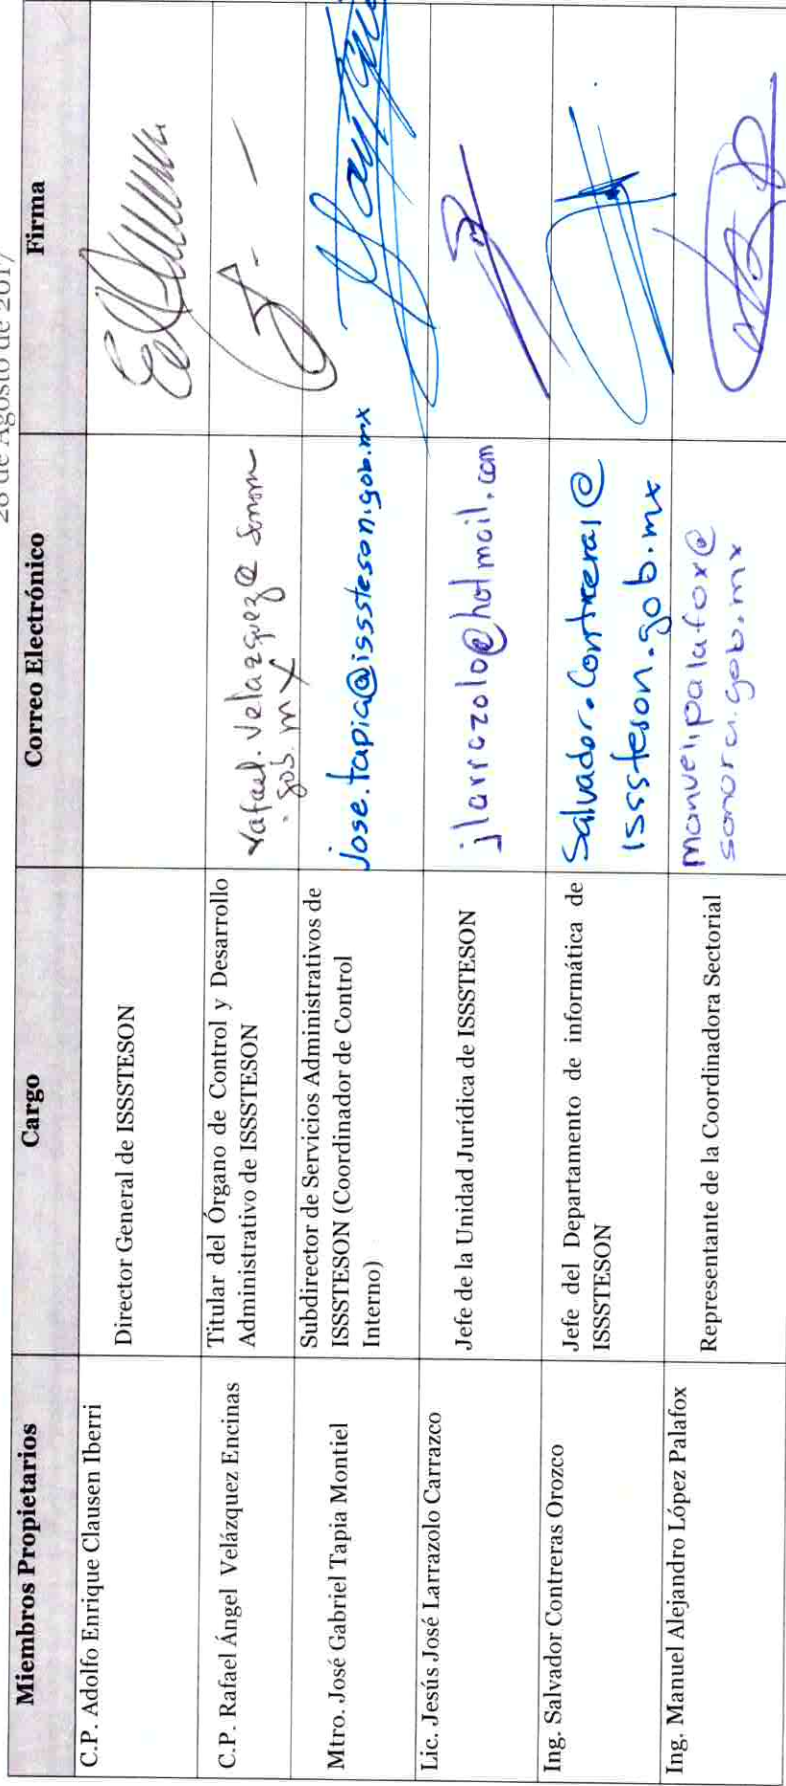 28 de Agosto de 2017
Miembros Propietarios
Cargo
Correo Electrónico
Firma
C.P. Adolfo Enrique Clausen Iberri
Director General de ISSSTESON
C.P. Rafael Ángel Velázquez Encinas
Titular del Órgano de Control y Desarrollo
Administrativo de ISSSTESON
rafael.velazquez@sonora
.gob.mx
Mtro. José Gabriel Tapia Montiel
Subdirector de Servicios Administrativos de
ISSSTESON (Coordinador de Control
Interno)
jose.tapia@isssteson.gob.mx
Lic. Jesús José Larrazolo Carrazco
Jefe de la Unidad Jurídica de ISSSTESON
jlarrazolo@hotmail.com
Ing. Salvador Contreras Orozco
Jefe del Departamento de informática de
ISSSTESON
Salvador.Contreras@
Isssteson.gob.mx
Ing. Manuel Alejandro López Palafox
Representante de la Coordinadora Sectorial
manuel.palafox@
sonora.gob.mx